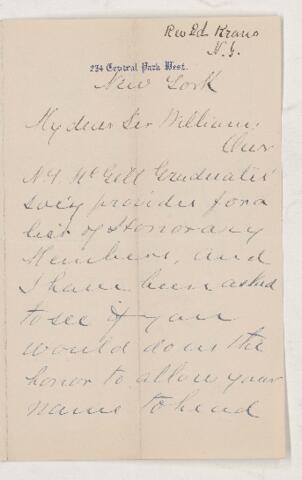 Rev Ed. Krans
N.Y.
234 Central Park West.
New York
My dear Sir William:
Our
N.Y. McGill Graduates'
Soc'y provides for a
list of Honorary
Members, and
I have been asked
to see if you
would do us the
honor to allow your
name to head